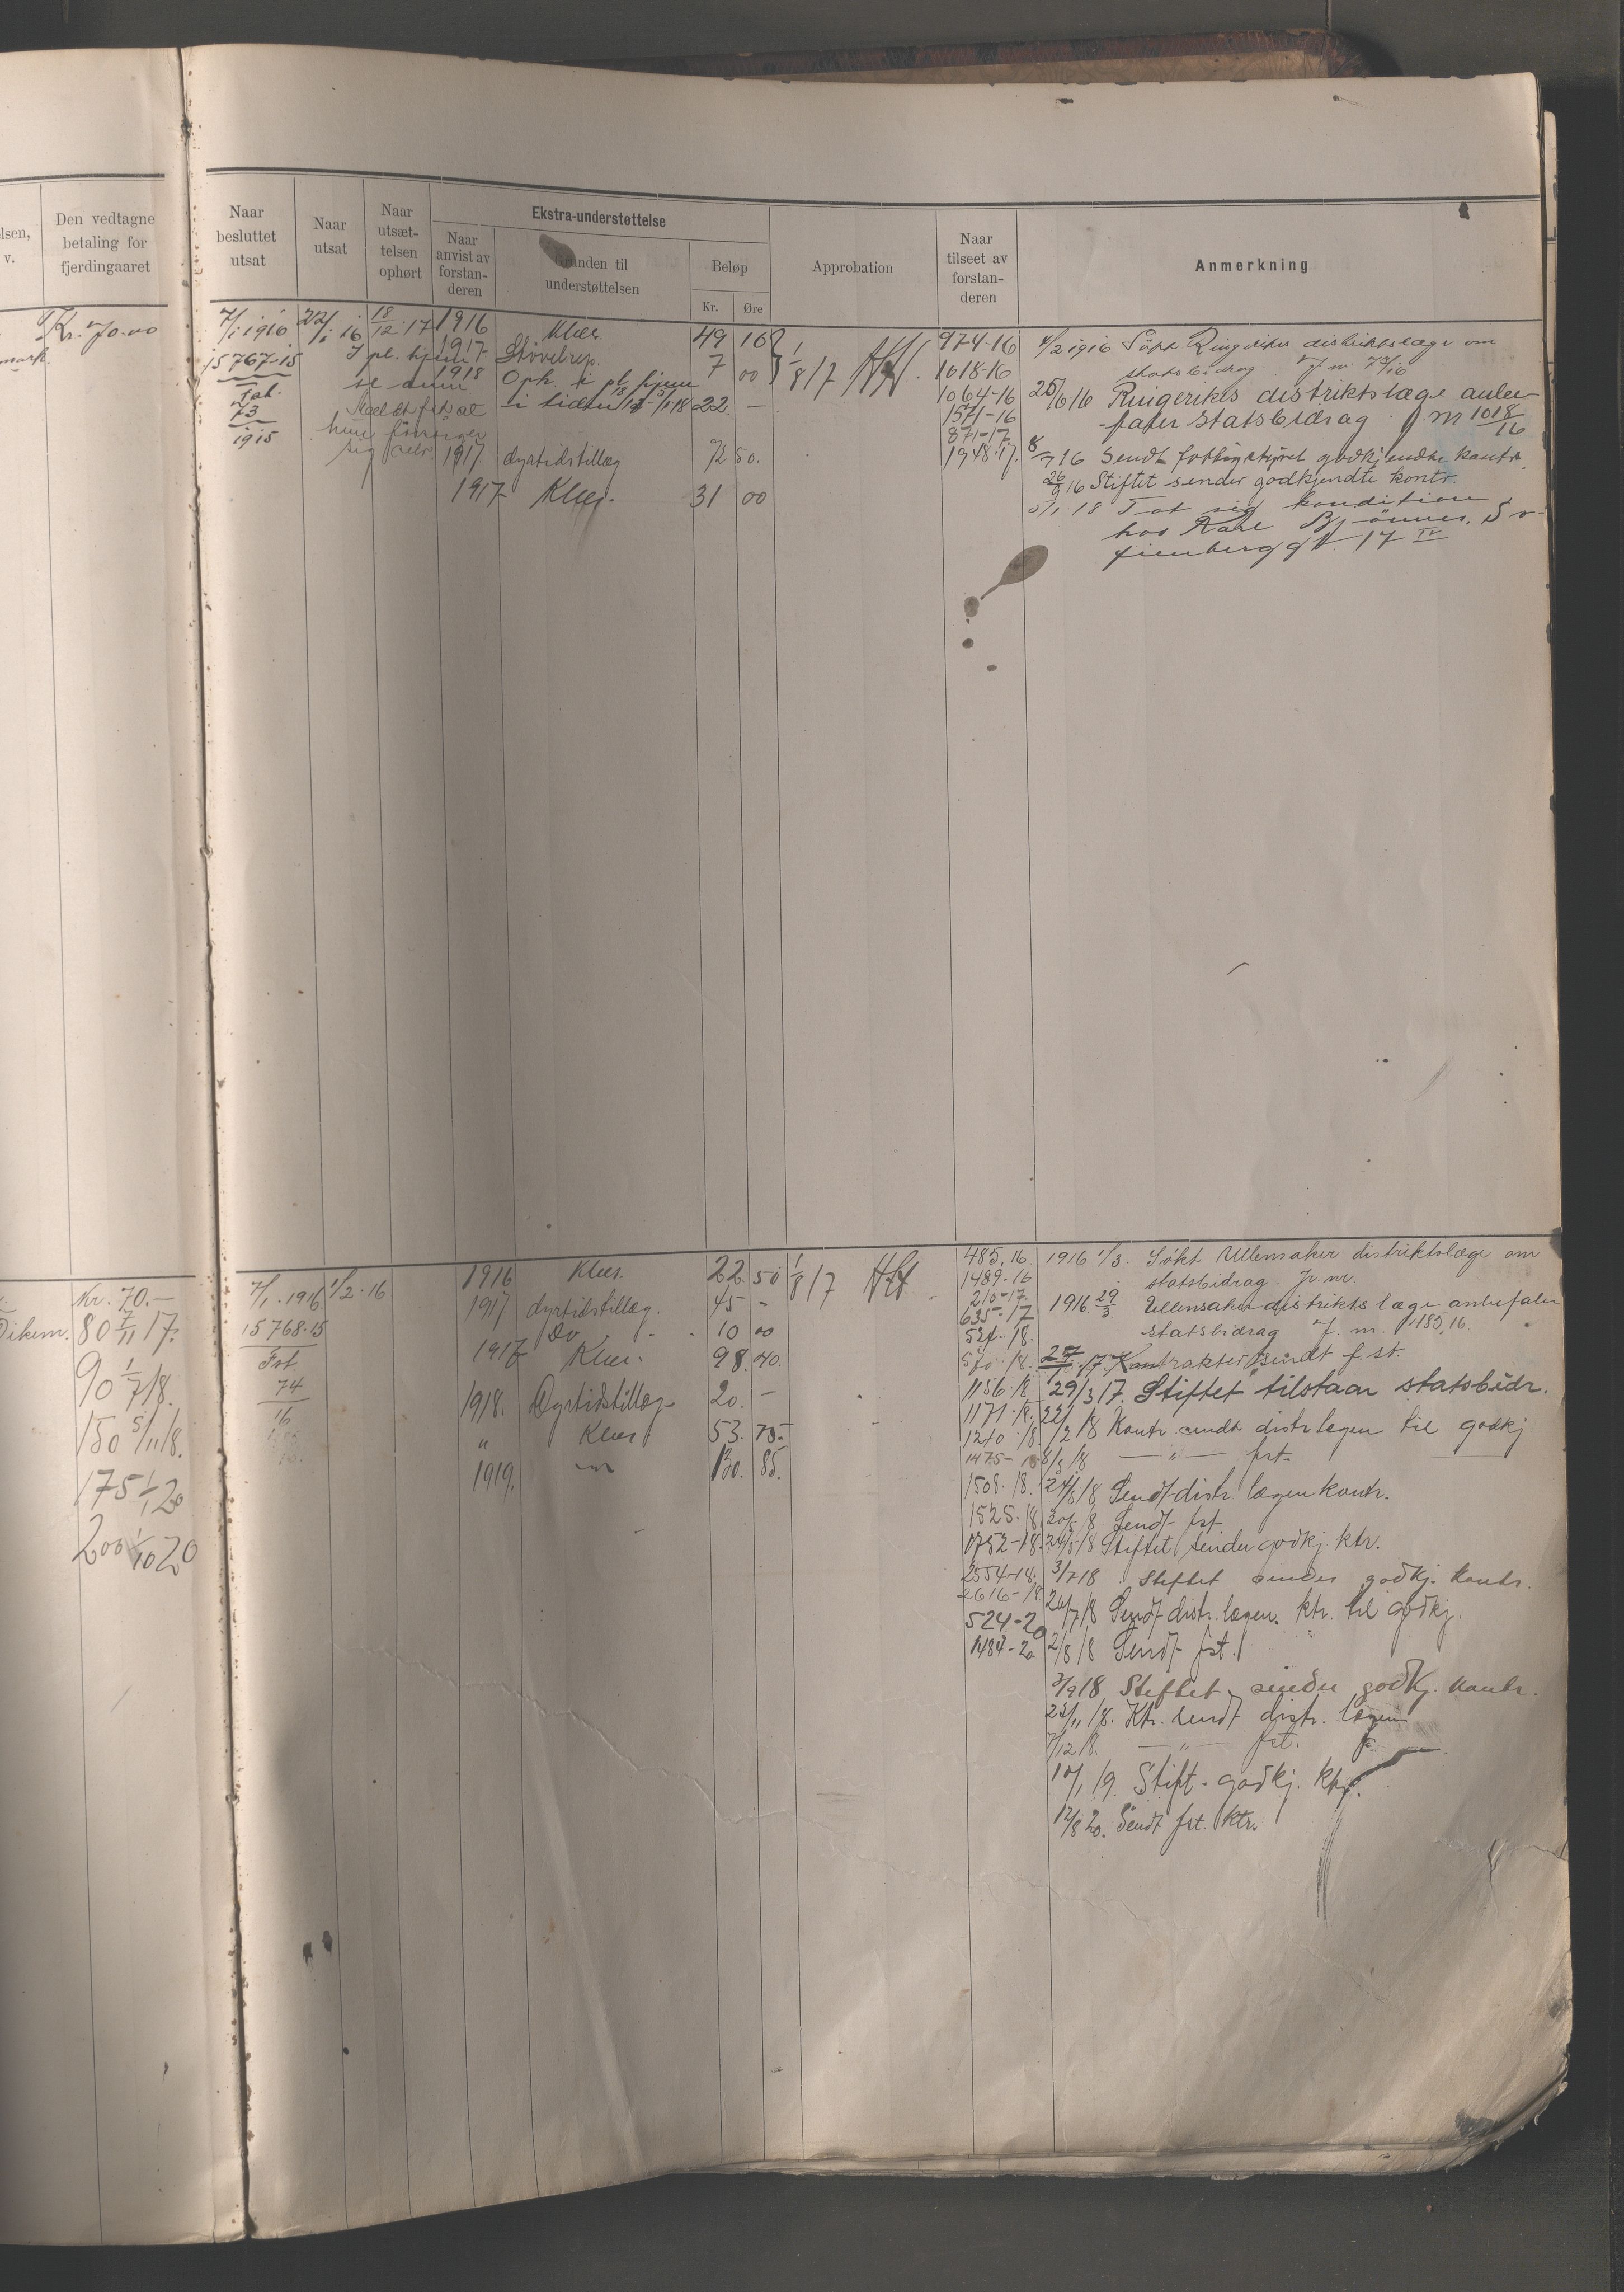 lsen,
v.
Den vedtagne
betaling for
fjerdingaaret
Naar
besluttet
utsat
Naar
utsat
Naar
utsæt-
telsen
ophørt
Ekstra-understøttelse
Naar
anvist av
forstan-
deren
Grunden til
understøttelsen
Beløp
Kr.
Øre
Approbation
Naar
tilseet av
forstan-
deren
Anmerkning
mark.
Kr. 70.00
7/1 1916
15767-15
Fat.
73
1915
22/1 16
18/12 17
I pl. hjem
se anm
hun forsørger
sig selv
1916 Klær. 49 10
1917 Støvelrep. 7 00
1918 Oph. i pl. hjem
i tiden 22. —
1917 dyrtidstillæg 72 50.
1917 Klær. 31 00
1/8 17
974-16
1018-16
1064-16
1571-16
871-17
1948-17.
4/2 1916 Søkt Ringerikes distriktslæge om
statsbidrag
25/6 16 Ringerikes distriktslæge anbe-
faler statsbidrag J. nr 1018/16
8/7 16 Sendt godkjendte kontr.
26/9 16 Stiftet sender godkjendte kontr.
5/1 18 Tat sig kondition
hos
fienberggt. 17 IV
Dikem.
Kr. 70.—
80 7/11 17.
90 1/7 18.
150 5/11 18.
175 1/1 20
200 1/10 20
7/1 1916
15768.15
Fat.
74
16
1/2 16
1916 Klær. 22 50
1917 dyrtidstillæg. 45 -
Do 10 00
1917 Klær. 98 40.
1918. Dyrtidstillæg 20. —
" Klær 53. 75
1919. 130. 85.
1/8 17
485.16
1489-16
210-17
635-17
570.18.
1156.18
1171.18.
1210.18
1475-18
1508.18.
1525.18.
1752-18.
2554-18.
2616-18.
524-20
1484-20
1916 1/3. Søkt Ullensaker distriktslæge om
statsbidrag. Jr. nr.
1916. 29/3 Ullensaker distriktslæge anbefaler
statsbidrag J. nr. 485.16.
Kontrakter sendt f.st.
29/3 17. Stiftet tilstaar statsbidr.
22/2 18 Kontr. sendt distr.lægen til godkj
8/3 18 — " — fst.
24/8 18 Sendt distr. lægen kontr.
Sendt fst.
24/5 18 Stiftet sender godkj. ktr.
3/7 18 Stiftet sender godkj. kontr.
20/7 18 Sendt distr. lægen. ktr. til godkj.
2/8 18 Sendt fst.
3/9 18 Stiftet sender godkj. kontr.
23/11 18. Ktr. sendt distr. lægen
7/12 18. — " — fst.
10/1 19. Stift. godkj. ktr.
12/8 20. Sendt fst. ktr.